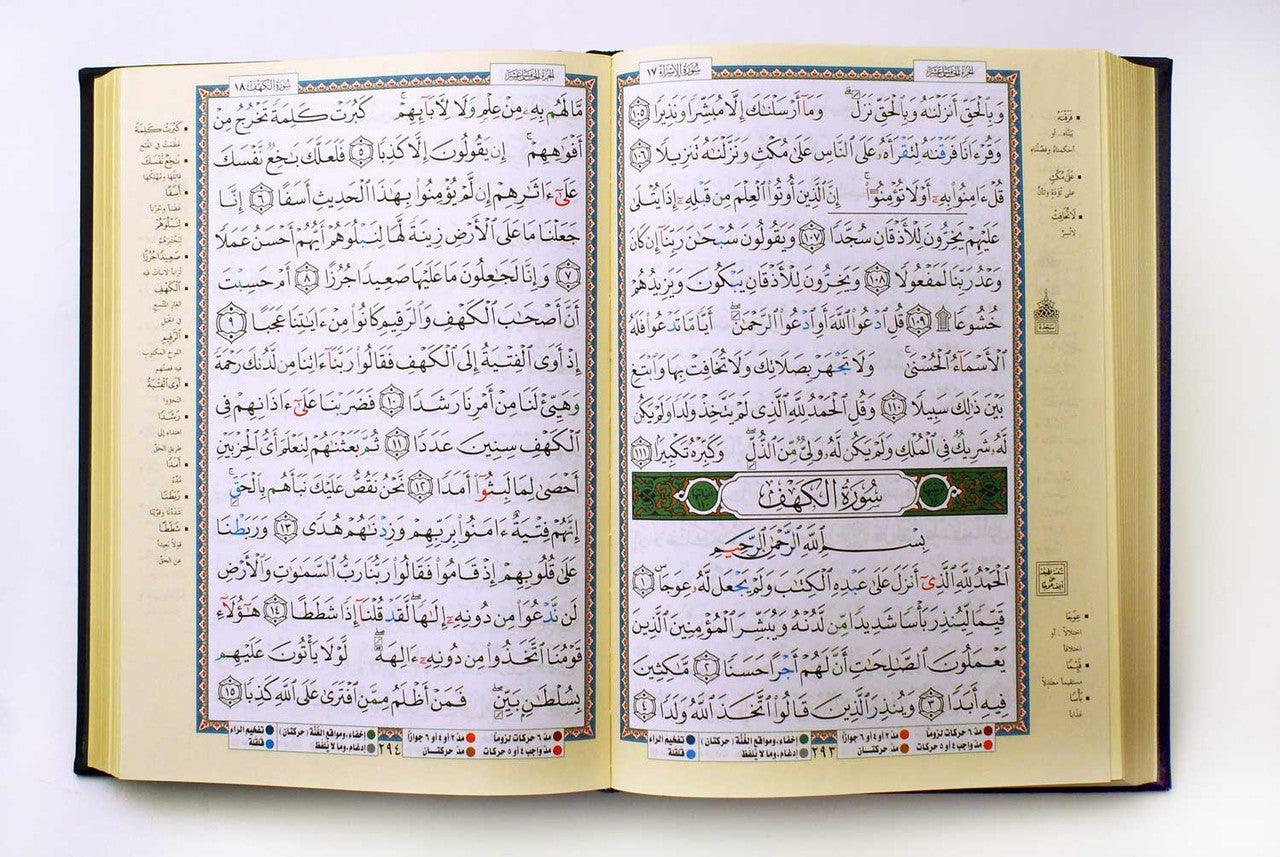 سورة الإسراء ١٧
الجزء الخامس عشر
وَبِالْحَقِّ أَنزَلْنَاهُ وَبِالْحَقِّ نَزَلَ وَمَا أَرْسَلْنَاكَ إِلَّا مُبَشِّرًا وَنَذِيرًا ١٠٥
وَقُرْءَانًا فَرَقْنَاهُ لِتَقْرَأَهُ عَلَى النَّاسِ عَلَى مُكْثٍ وَنَزَّلْنَاهُ تَنزِيلًا ١٠٦
قُلْ ءَامِنُوا بِهِ أَوْ لَا تُؤْمِنُوا إِنَّ الَّذِينَ أُوتُوا الْعِلْمَ مِن قَبْلِهِ إِذَا يُتْلَى
عَلَيْهِمْ يَخِرُّونَ لِلْأَذْقَانِ سُجَّدًا ١٠٧ وَيَقُولُونَ سُبْحَانَ رَبِّنَا إِن كَانَ
وَعْدُ رَبِّنَا لَمَفْعُولًا ١٠٨ وَيَخِرُّونَ لِلْأَذْقَانِ يَبْكُونَ وَيَزِيدُهُمْ
خُشُوعًا ۩ ١٠٩ قُلِ ادْعُوا اللَّهَ أَوِ ادْعُوا الرَّحْمَٰنَ أَيًّا مَّا تَدْعُوا فَلَهُ
الْأَسْمَاءُ الْحُسْنَى وَلَا تَجْهَرْ بِصَلَاتِكَ وَلَا تُخَافِتْ بِهَا وَابْتَغِ
بَيْنَ ذَٰلِكَ سَبِيلًا ١١٠ وَقُلِ الْحَمْدُ لِلَّهِ الَّذِي لَمْ يَتَّخِذْ وَلَدًا وَلَمْ يَكُن
لَّهُ شَرِيكٌ فِي الْمُلْكِ وَلَمْ يَكُن لَّهُ وَلِيٌّ مِّنَ الذُّلِّ وَكَبِّرْهُ تَكْبِيرًا ١١١
سُورَةُ الْكَهْفِ
بِسْمِ اللَّهِ الرَّحْمَٰنِ الرَّحِيمِ
الْحَمْدُ لِلَّهِ الَّذِي أَنزَلَ عَلَى عَبْدِهِ الْكِتَابَ وَلَمْ يَجْعَل لَّهُ عِوَجًا ١
قَيِّمًا لِّيُنذِرَ بَأْسًا شَدِيدًا مِّن لَّدُنْهُ وَيُبَشِّرَ الْمُؤْمِنِينَ الَّذِينَ
يَعْمَلُونَ الصَّالِحَاتِ أَنَّ لَهُمْ أَجْرًا حَسَنًا ٢ مَّاكِثِينَ
فِيهِ أَبَدًا ٣ وَيُنذِرَ الَّذِينَ قَالُوا اتَّخَذَ اللَّهُ وَلَدًا ٤
فرقناه
بيّناه، أو
أحكمناه وفصّلناه
على مكث
على تؤدة وتأنّ
لا تخافت
لا تسرّ
سجدة
عوجا
اختلالا، أو
اختلافا
قيّما
مستقيما معتدلا
بأسا
عذابا
مدّ ٦ حركات لزوماً
مدّ ٢ أو ٤ أو ٦ جوازاً
إخفاء، ومواقع الغُنَّة (حركتان)
تفخيم الراء
مدّ واجب ٤ أو ٥ حركات
مدّ حركتان
٢٩٣
إدغام، وما لا يُلفظ
قلقلة
سورة الكهف ١٨
الجزء الخامس عشر
مَّا لَهُم بِهِ مِنْ عِلْمٍ وَلَا لِآبَائِهِمْ كَبُرَتْ كَلِمَةً تَخْرُجُ مِنْ
أَفْوَاهِهِمْ إِن يَقُولُونَ إِلَّا كَذِبًا ٥ فَلَعَلَّكَ بَاخِعٌ نَّفْسَكَ
عَلَى ءَاثَارِهِمْ إِن لَّمْ يُؤْمِنُوا بِهَٰذَا الْحَدِيثِ أَسَفًا ٦ إِنَّا
جَعَلْنَا مَا عَلَى الْأَرْضِ زِينَةً لَّهَا لِنَبْلُوَهُمْ أَيُّهُمْ أَحْسَنُ عَمَلًا
٧ وَإِنَّا لَجَاعِلُونَ مَا عَلَيْهَا صَعِيدًا جُرُزًا ٨ أَمْ حَسِبْتَ
أَنَّ أَصْحَابَ الْكَهْفِ وَالرَّقِيمِ كَانُوا مِنْ ءَايَاتِنَا عَجَبًا ٩
إِذْ أَوَى الْفِتْيَةُ إِلَى الْكَهْفِ فَقَالُوا رَبَّنَا ءَاتِنَا مِن لَّدُنكَ رَحْمَةً
وَهَيِّئْ لَنَا مِنْ أَمْرِنَا رَشَدًا ١٠ فَضَرَبْنَا عَلَى ءَاذَانِهِمْ فِي
الْكَهْفِ سِنِينَ عَدَدًا ١١ ثُمَّ بَعَثْنَاهُمْ لِنَعْلَمَ أَيُّ الْحِزْبَيْنِ
أَحْصَى لِمَا لَبِثُوا أَمَدًا ١٢ نَّحْنُ نَقُصُّ عَلَيْكَ نَبَأَهُم بِالْحَقِّ
إِنَّهُمْ فِتْيَةٌ ءَامَنُوا بِرَبِّهِمْ وَزِدْنَاهُمْ هُدًى ١٣ وَرَبَطْنَا
عَلَى قُلُوبِهِمْ إِذْ قَامُوا فَقَالُوا رَبُّنَا رَبُّ السَّمَاوَاتِ وَالْأَرْضِ
لَن نَّدْعُوَا مِن دُونِهِ إِلَٰهًا لَّقَدْ قُلْنَا إِذًا شَطَطًا ١٤ هَٰؤُلَاءِ
قَوْمُنَا اتَّخَذُوا مِن دُونِهِ ءَالِهَةً لَّوْلَا يَأْتُونَ عَلَيْهِم
بِسُلْطَانٍ بَيِّنٍ فَمَنْ أَظْلَمُ مِمَّنِ افْتَرَى عَلَى اللَّهِ كَذِبًا ١٥
كبرت كلمة
عظمت في القبح
باخع نفسك
قاتلها ومهلكها
أسفا
غضبا وحزنا
لنبلوهم
لنختبرهم
صعيدا جرزا
ترابا لا نبات فيه
الكهف
الغار المتّسع
في الجبل
الرقيم
اللوح المكتوب
فيه قصتهم
أوى الفتية
التجؤوا
رشدا
اهتداء إلى
طريق الحق
أمدا
مدّة
ربطنا
شددنا وقوّينا
شططا
قولا بعيدا
عن الحق
مدّ ٦ حركات لزوماً
مدّ ٢ أو ٤ أو ٦ جوازاً
إخفاء، ومواقع الغُنَّة (حركتان)
تفخيم الراء
مدّ واجب ٤ أو ٥ حركات
مدّ حركتان
٢٩٤
إدغام، وما لا يُلفظ
قلقلة